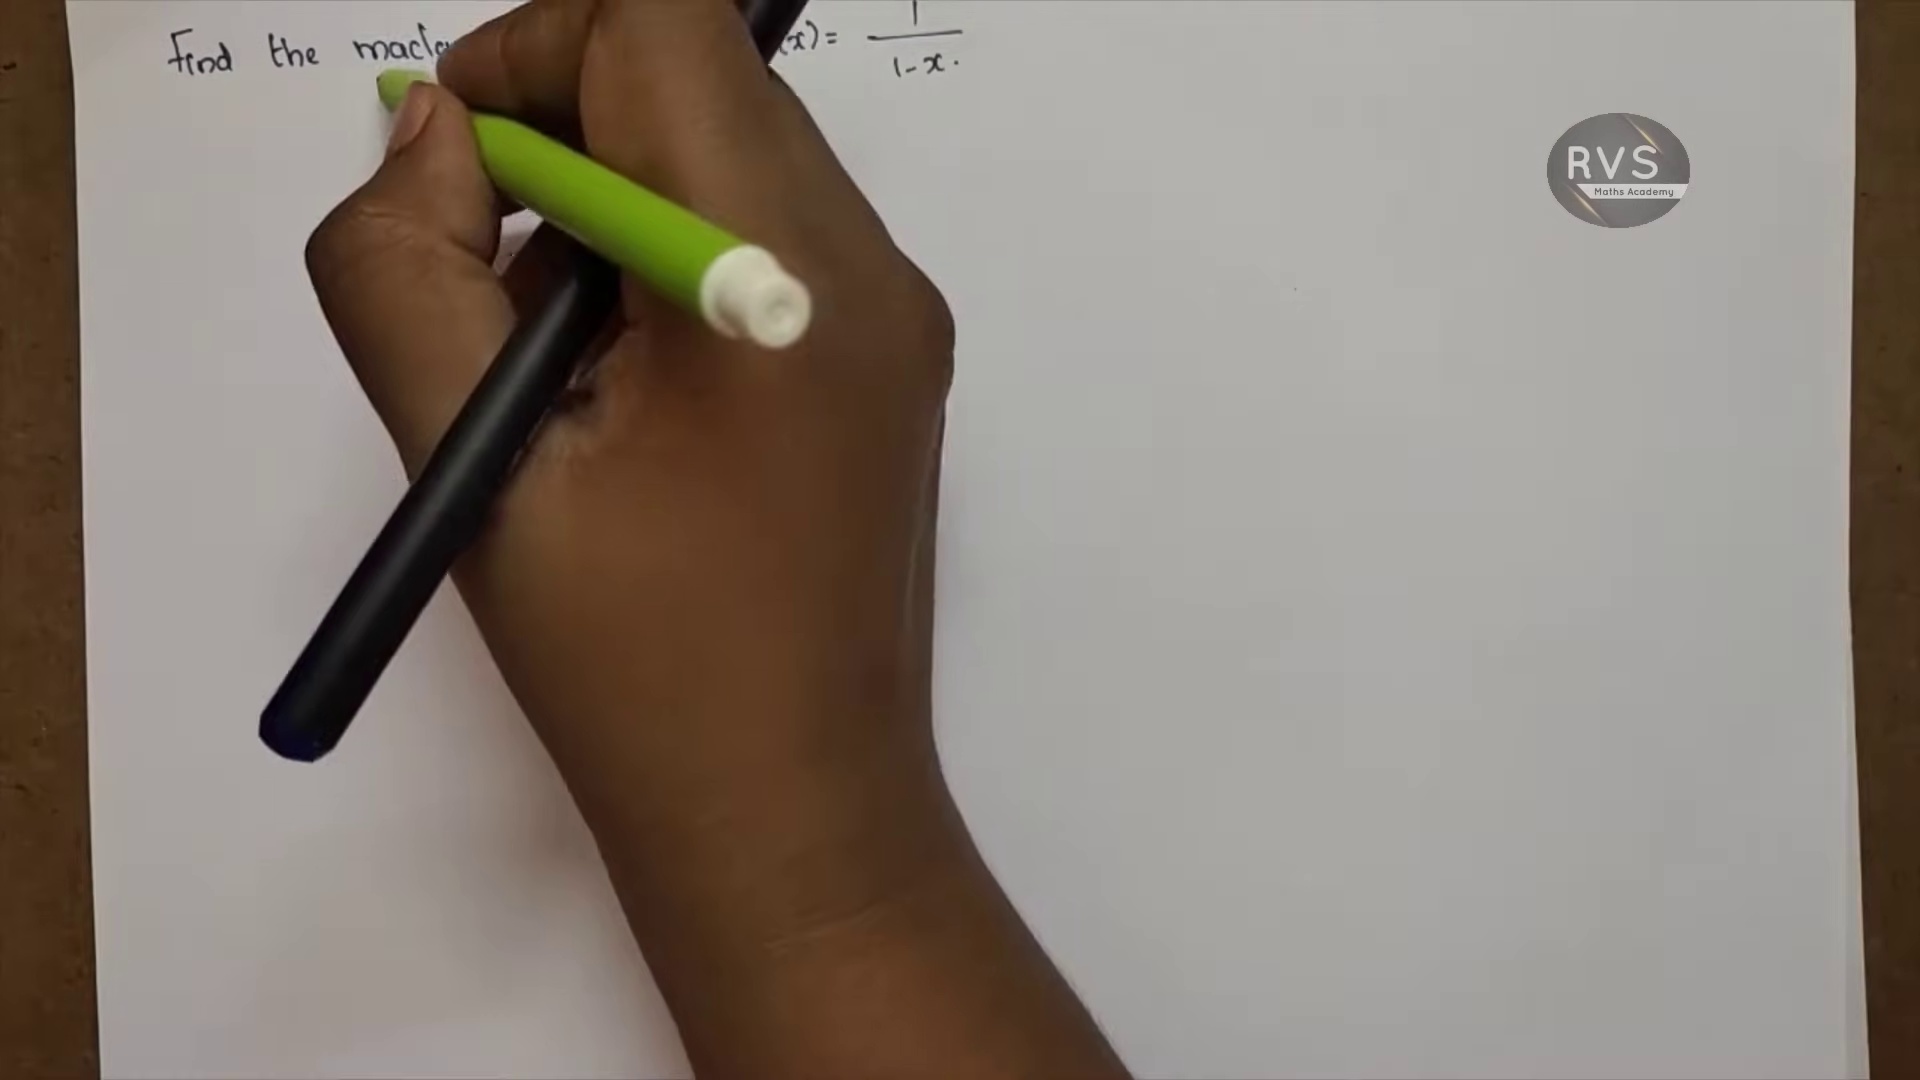 Find the (x) = 1/1-x.
RVS
Maths Academy